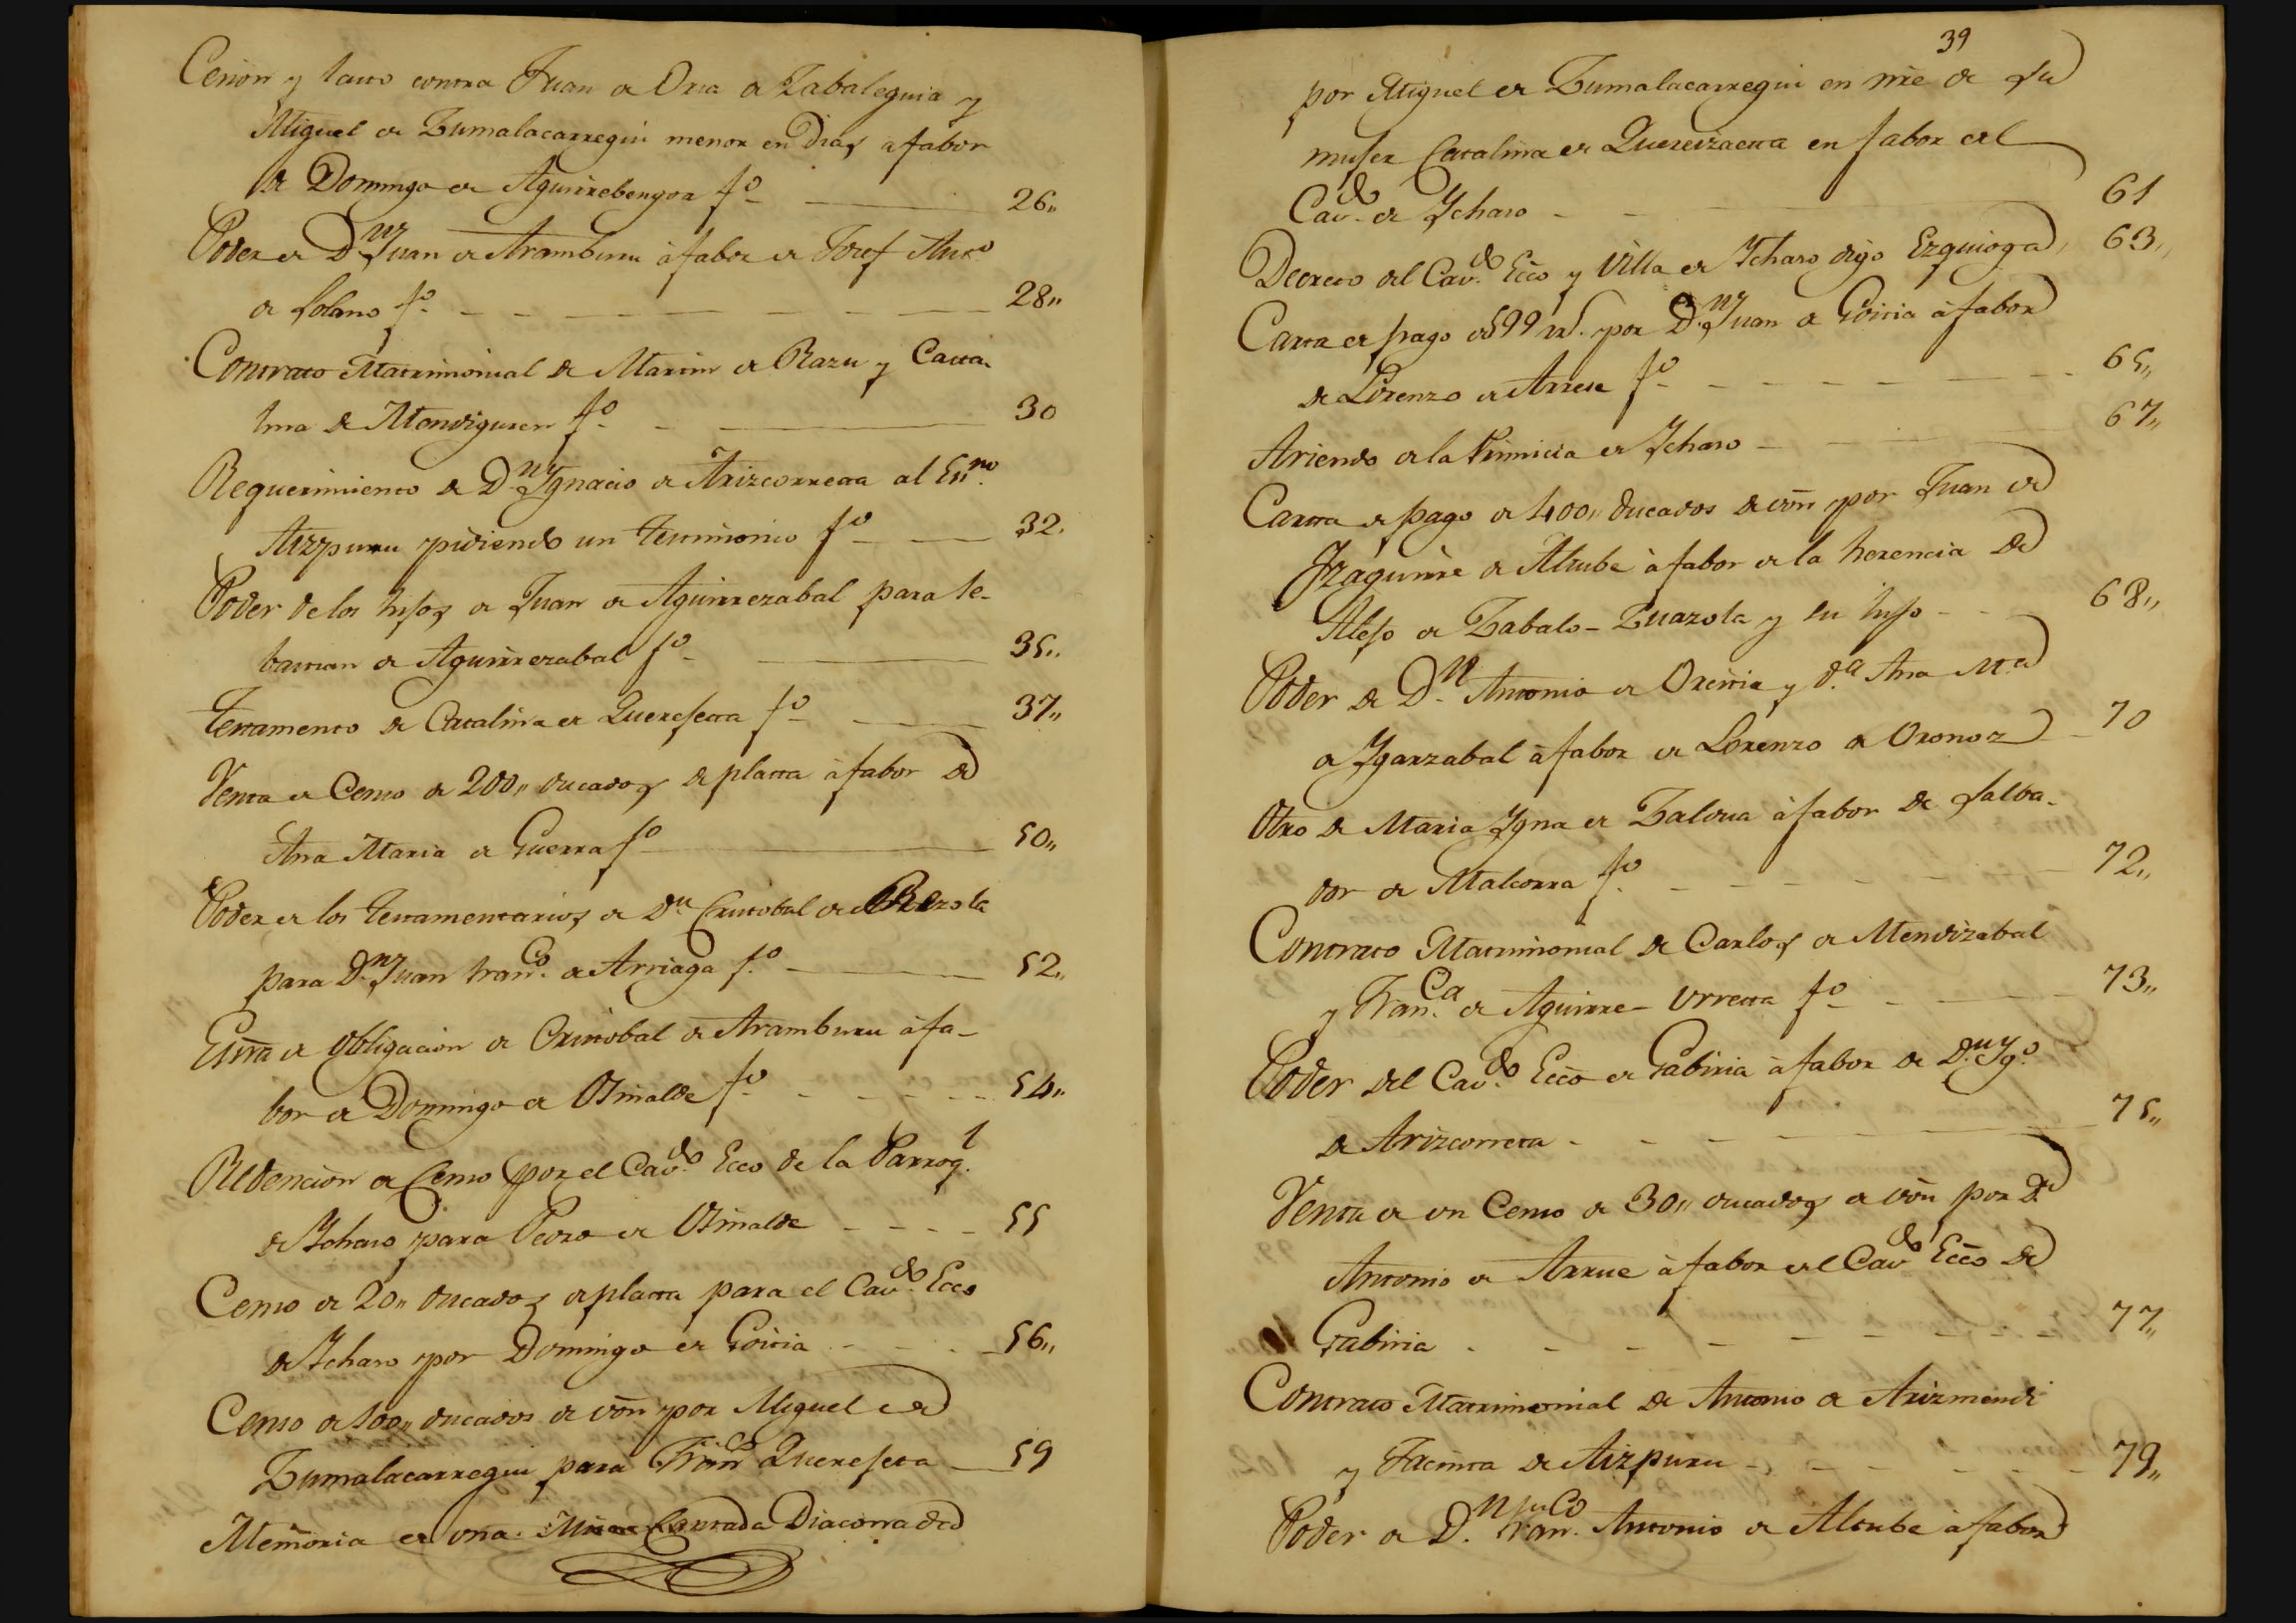 Cesion y lasto contra Juan de Oria de Zabaleguia y
Miguel de Zumalacarregui menor en Dias a fabor
de Domingo de Aguirrebengoa fo 26,,
Poder de Dn Juan de Aramburu à fabor de Josef Anto
de Solano fo 28,,
Contrato Matrimonial de Martin de Razu y Cata-
lina de Mendiguren fo 30
Requerimiento de Dn Ygnacio de Arizcorreta al Ssno
Aizpuru pidiendo un testimonio fo 32.
Poder de los hijos de Juan de Aguirrezabal para Se-
bastian de Aguirrezabal fo 35,,
Testamento de Catalina de Querejeta fo 37,,
Venta de Censo de 200,, ducados de plata à fabor de
Ana Maria de Guerra fo 50,,
Poder de los testamentarios de Dn Cristobal de
para Dn Juan Franco de Arriaga fo 52,,
Essra de obligacion de Cristobal de Aramburu à fa-
bor de Domingo de Osinalde fo 54,,
Redencion de Censo por el Cavdo Ecco de la Parroql
de Ychaso para Pedro de Osinalde 55
Censo de 20,, ducados de plata para el Cavdo Ecco
de Ychaso por Domingo de Goitia 56,,
Censo de 100,, ducados de von por Miguel de
Zumalacarregui para Franco Querejeta 59
Memoria de una Misa Cantada Diaconada
39
por Miguel de Zumalacarregui en nre de su
mujer Catalina de Querejzaeta en fabor del
Cavdo de Ychaso 61
Decreto del Cavdo Ecco y Villa de Ychaso digo Ezquioga 63,,
Carta de pago de 599 rs. por Dn Juan de Goitia à fabor
de Lorenzo de Arrese fo 65,,
Ariendo de la Primicia de Ychaso 67,,
Carta de pago de 400,, ducados de von por Juan de
Yzaguirre de Altube à fabor de la herencia de
Alejo de Zabalo-Zuazola y su hijo 68,,
Poder de Dn Antonio de Oreitia y da Ana Ma
de Ygarzabal à fabor de Lorenzo de Oronoz 70
Otro de Maria Ygna de Zaldua à fabor de Salba-
dor de Malcorra fo 72,,
Contrato Matrimonial de Carlos de Mendizabal
y Franca de Aguirre-Urreta fo 73,,
Poder del Cavdo Ecco de Gabiria à fabor de Dn Ygo
de Arizcorreta 75,,
Venta de un Censo de 30,, ducados de von por Dn
Antonio de Arrue à fabor del Cavdo Ecco de
Gabiria 77,,
Contrato Matrimonial de Antonio de Arizmendi
y Jacinta de Aizpuru 79,,
Poder de Dn Franco Antonio de Altube à fabor